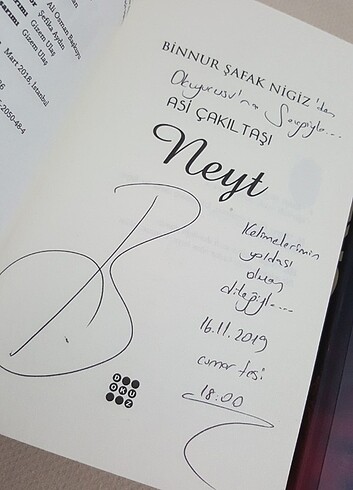 Ali Osman Başkuyu
Şefika Aydın
arımı Gizem Ulaş
sarımı
Gizem Ulaş
Mart 2018, İstanbul
-2050-48-4
BİNNUR ŞAFAK NİGİZ'den
Okuyucusu'na Sevgiyle...
ASİ ÇAKILTAŞI
Neyt
Kelimelerimin
yoldaşı
olman
dileğiyle....
16.11.2019
cumartesi
18:00
DOKUZ